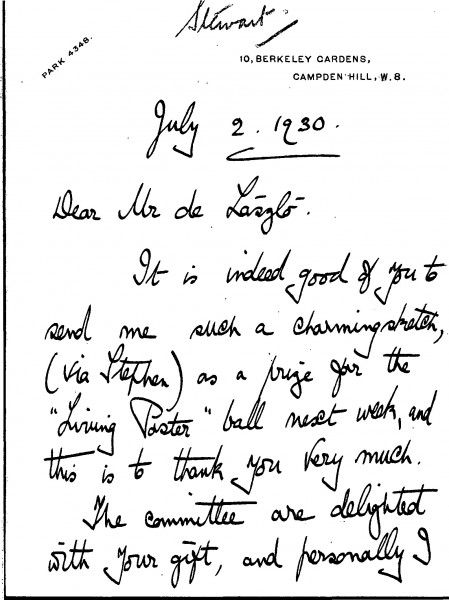 Stewart
PARK 4348.
10, BERKELEY GARDENS,
CAMPDEN HILL, W. 8.
July 2. 1930.
Dear Mr de László.
It is indeed good of you to
send me such a charming sketch,
(via Stephen) as a prize for the
"Living Poster" ball next week, and
this is to thank you very much.
The committee are delighted
with your gift, and personally I